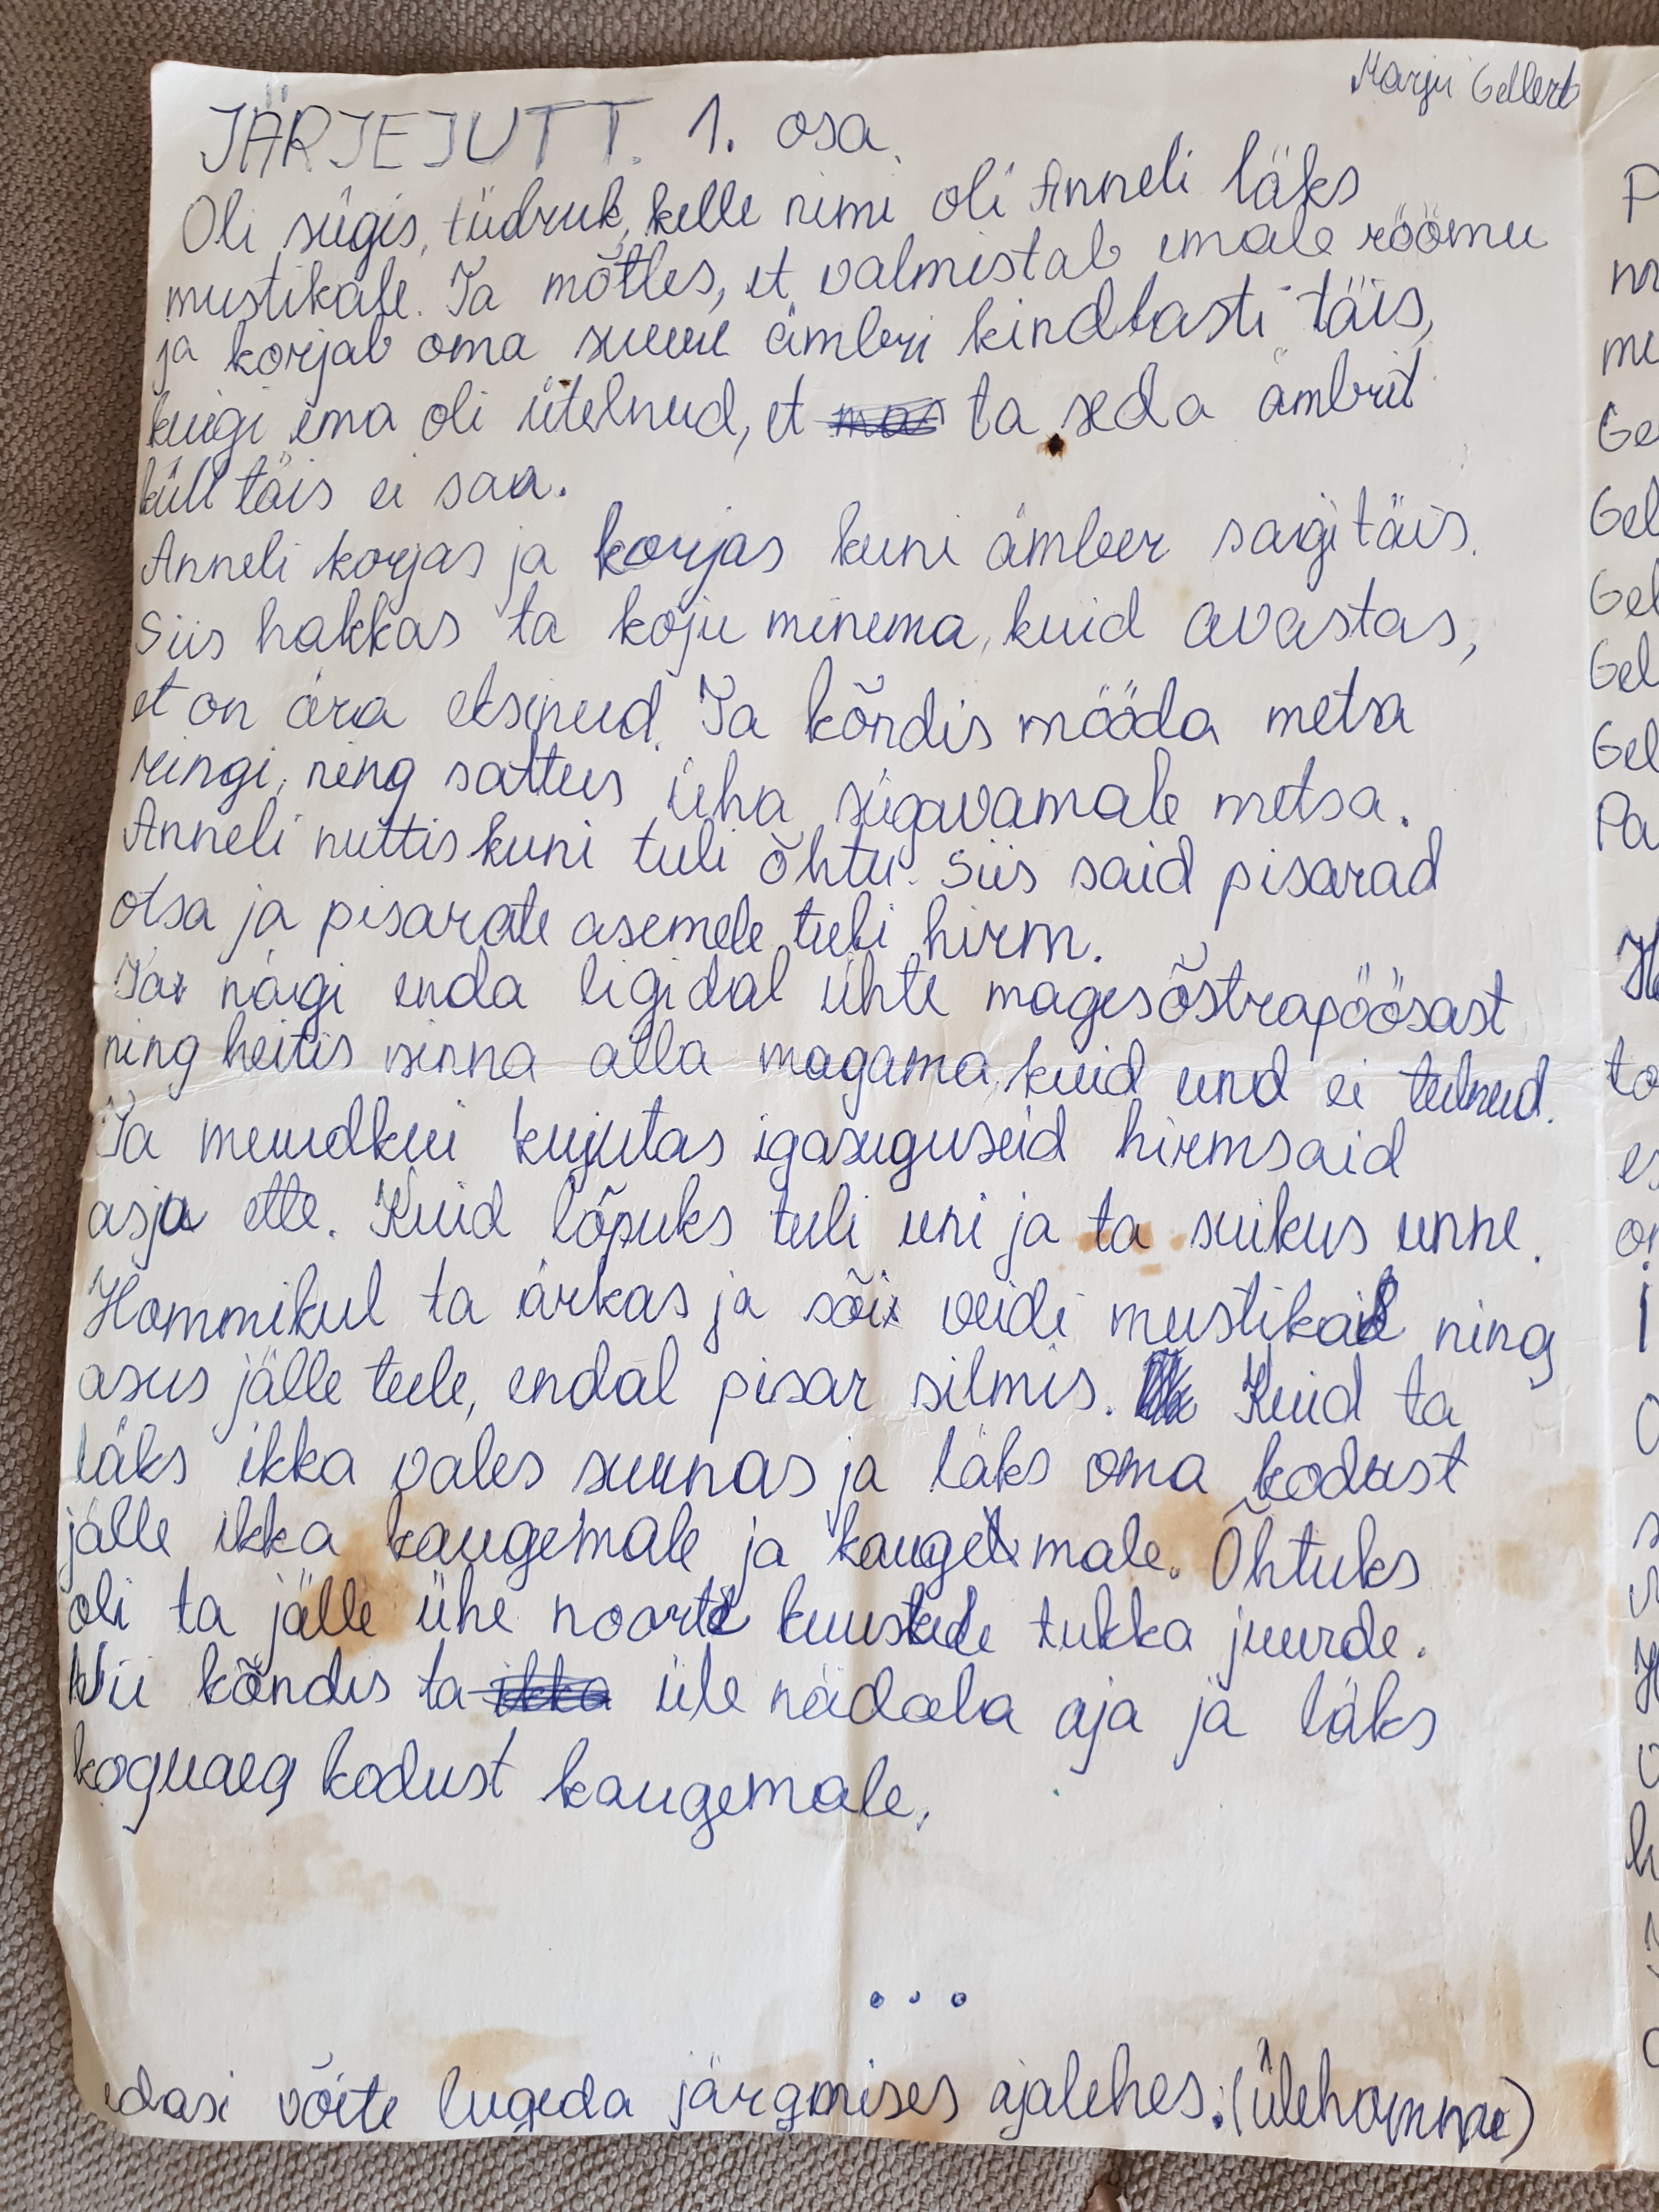 Marju Gellert
JÄRJEJUTT. 1. osa.
Oli sügis, tüdruk, kelle nimi oli Anneli läks
mustikale. Ta mõtles, et valmistab emale rõõmu
ja korjab oma suure ämbri kindlasti täis,
kuigi ema oli ütelnud, et ta seda ämbrit
küll täis ei saa.
Anneli korjas ja korjas kuni ämber saigi täis.
Siis hakkas ta koju minema, kuid avastas,
et on ära eksinud. Ta kõndis mööda metsa
ringi, ning sattus üha sügavamale metsa.
Anneli nuttis kuni tuli õhtu. Siis said pisarad
otsa ja pisarate asemele tuli hirm.
Ta nägi enda ligidal ühte magesõstrapõõsast
ning heitis sinna alla magama, kuid und ei tulnud.
Ta muudkui kujutas igasuguseid hirmsaid
asja ette. Kuid lõpuks tuli uni ja ta suikus unne.
Hommikul ta ärkas ja sõi veidi mustikaid ning
asus jälle teele, endal pisar silmis. Kuid ta
läks ikka vales suunas ja läks oma kodust
jälle ikka kaugemale ja kaugemale. Õhtuks
oli ta jälle ühe noorte kuuskede tukka juurde.
Nii kõndis ta üle nädala aja ja läks
koguaeg kodust kaugemale.
...
edasi võite lugeda järgmises ajalehes. (ülehomme)